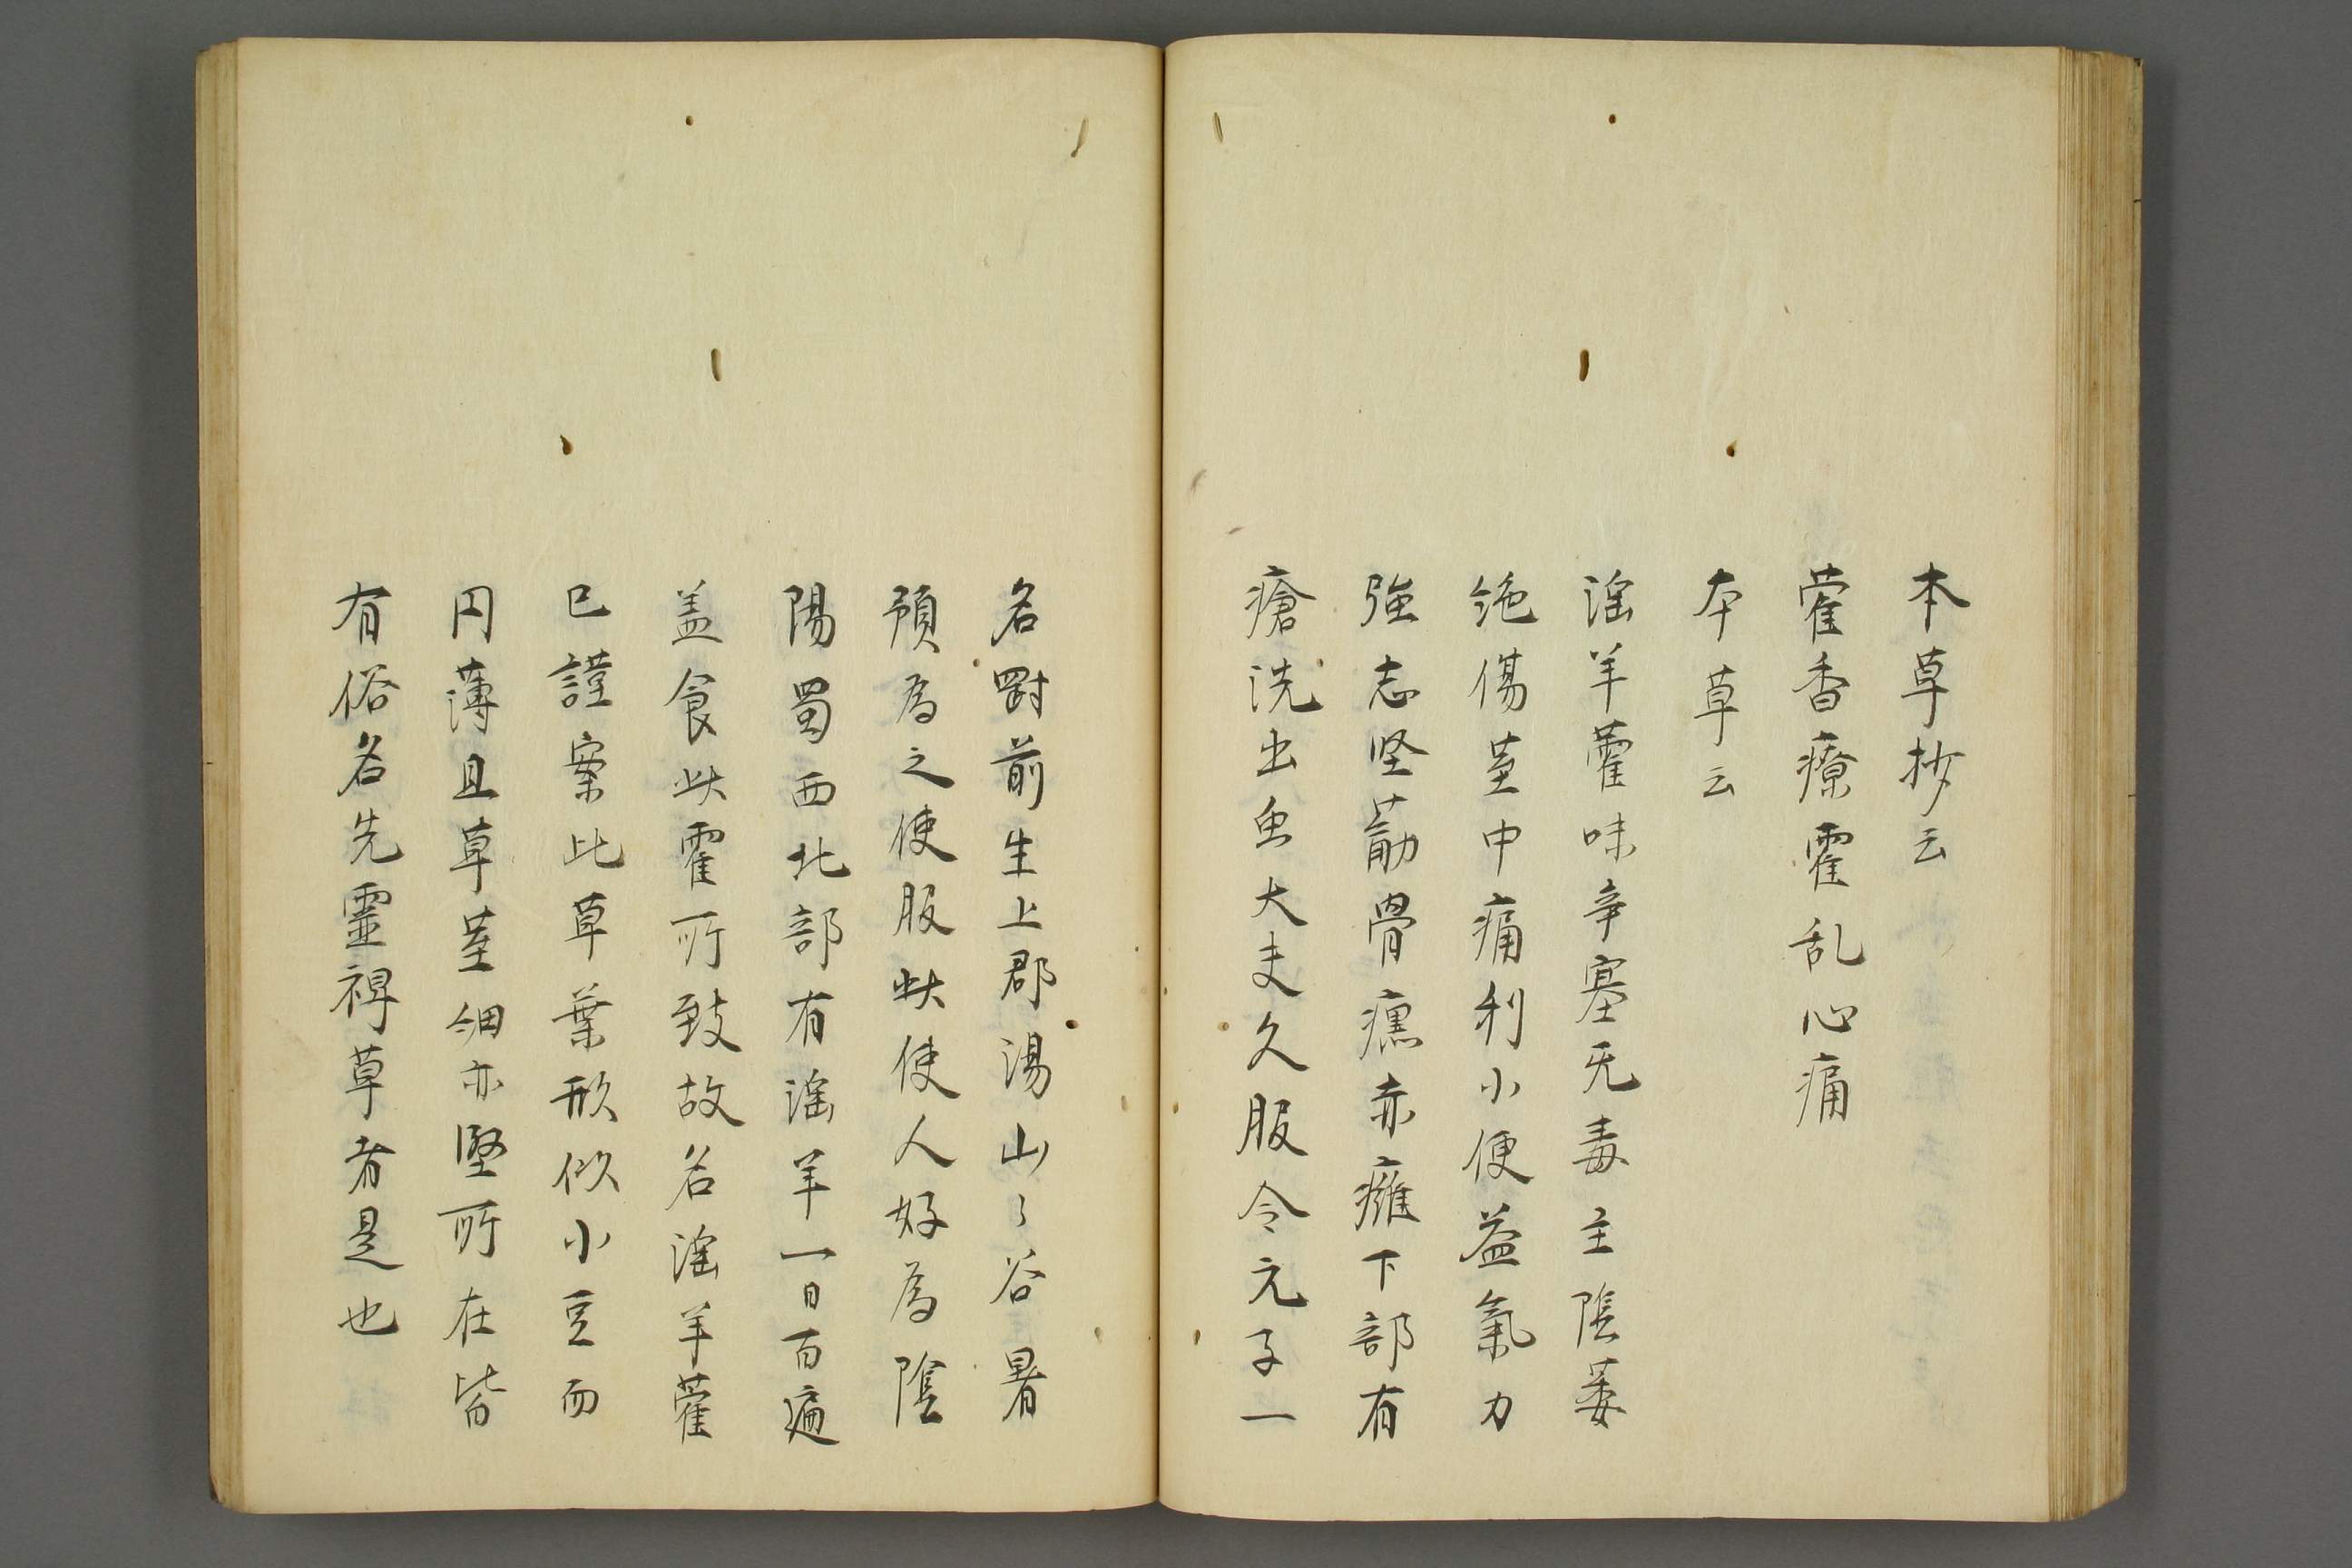 本草抄云
藿香療霍乱心痛
本草云
滛羊藿味辛塞无毒主陰萎
绝傷莖中痛利小便益氣力
強志坚萠骨瘰赤癰下部有
瘡洗出虫大夫久服令元子一
名罸前生上郡湯山々谷暑
預為之使服此使人好為陰
陽蜀西北部有滛羊一日百遍
盖食此霍所致故名滛羊藿
已謹案此草葉形似小豆而
円薄且草莖细亦堅所在皆
有俗名先靈裨草者是也